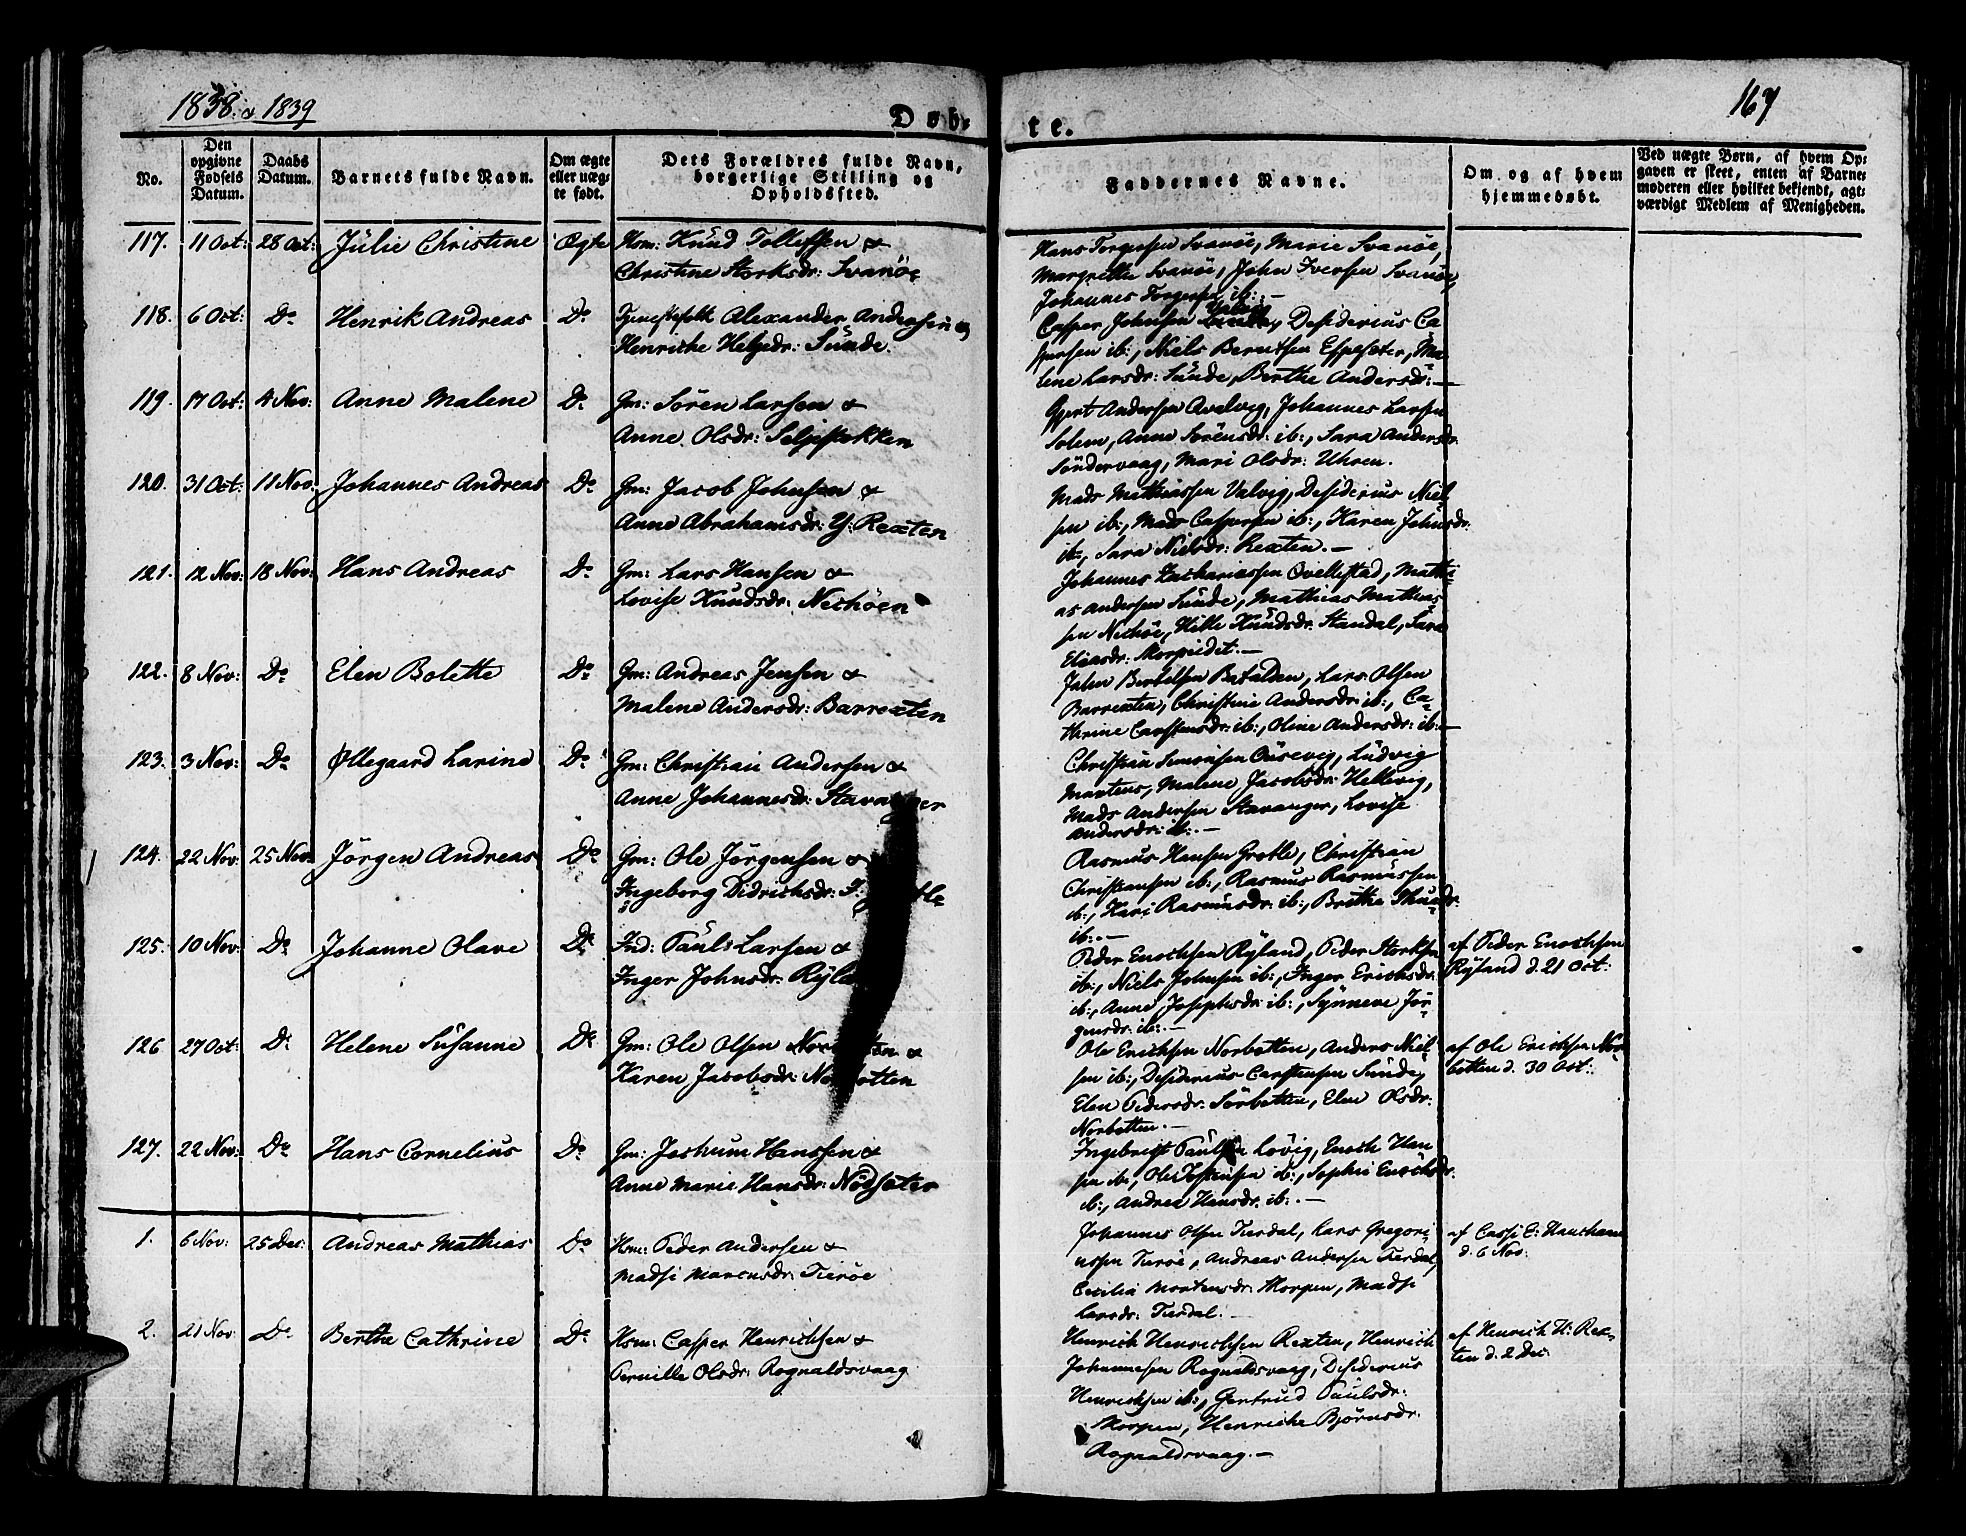 1838 & 1839
Døb-
te.
167
No.
Den opgivne Fødsels Datum.
Daabs Datum.
Barnets fulde Navn.
Om ægte eller uægte født.
Dets Forældres fulde Navn, borgerlige Stilling og Opholdssted.
Faddernes Navne.
Om og af hvem hjemmedøbt.
Ved uægte Børn, af hvem Op-
gaven er skeet, enten af Barne-
moderen eller hvilket bekjendt, agt-
værdigt Medlem af Menigheden.
117. 11 Oct: 28 Oct: Julie Christine Ægte Hsm: Knud Tollefsen &
Christine Storksdr: Svanöe
Hans Torgersen Svanöe, Marie Svanöe,
Margrethe Svanöe, John Iversen Svanöe,
Johannes Torgersen ib:. —
118. 6 Oct: Do Henrik Andreas Do Tjenestefolk Alexander Andersen og
Henriche Helgedr: Sunde.
Casper Johnsen Valvig, Desiderius Ca-
spersen ib:, Niels Berntsen Espeseter, Ma-
lene Larsdr: Sunde, Berthe Andersdr: —
119. 17 Oct: 4 Nov: Anne Malene Do Gm: Sören Larsen &
Anne Olsdr: Seljestokken
Gjert Andersen Qvalvig, Johannes Larsen
Solem, Anne Sörensdr: ib:, Sara Andersdr:
Söndervaag, Mari Olsdr: Uhren.
120. 31 Oct: 11 Nov: Johannes Andreas Do Gm: Jacob Johnsen &
Anne Abrahamsdr: Y: Rexten
Mads Mathiassen Valvig, Desiderius Niel-
sen ib:, Mads Caspersen ib:, Karen Johnsdr:
ib:, Sara Nielsdr: Rexten. —
121. 12 Nov: 18 Nov: Hans Andreas Do Gm: Lars Hansen &
Lovise Knudsdr: Nechöen
Johannes Zachariassen Qvellestad, Mathi-
as Andersen Sunde, Mathias Mathias-
sen Nechöe, Hille Knudsdr: Standal, Sara
Eliasdr: Skorpeidet. —
122. 8 Nov: Do Elen Bolette Do Gm: Andreas Jensen &
Malene Andersdr: Barrexten
John Bertelsen Batalden, Lars Olsen
Barrexten, Christine Andersdr: ib:, Ca-
thrine Carstensdr: ib:, Oline Andersdr: ib: —
123. 3 Nov: Do Øllegaard Larine Do Gm: Christian Andersen &
Anne Johannesdr: Stavanger
Christian Simonsen Ousevig, Ludvig
Martens, Malene Jacobsdr: Hellevig,
Mads Andersen Stavanger, Lovise
Andersdr: ib:. —
124. 22 Nov: 25 Nov: Jörgen Andreas Do Gm: Ole Jörgensen &
Ingeborg Didrichsdr:
Rasmus Hansen Grotle, Christian
Christiansen ib:, Rasmus Rasmussen
ib:, Kari Rasmusdr: ib:, Brithe
ib:. —
125. 10 Nov: Do Johanne Olave Do Ind: Pauls Larsen &
Inger Johnsdr: Ryla
Peder Enochsen Ryland, Peder Storksen
ib:, Niels Johnsen ib:, Inger Erichsdr:
ib:, Anne Josephsdr: ib:, Synneve Jör-
gensdr: ib:. —
af Peder Enochsen
Ryland d. 21 Oct:
126 27 Oct: Do Helene Susanne Do Gm: Ole Olsen Norbotten &
Karen Jacobsdr: Norbotten
Ole Erichsen Norbotten, Anders Niel-
sen ib:, Desiderius Carstensen Sunde,
Elen Pedersdr: Sörbotten, Elen Olsdr:
Norbotten. —
af Ole Erichsen Nor-
botten d. 30 Oct:.
127. 22 Nov: Do Hans Cornelius Do Gm: Jochum Hanssen &
Anne Marie Hansdr: Nödseter
Ingebrigt Paulsen Lövig, Enoch Han-
sen ib:, Ole ib:, Sophie Enochsdr:
ib:, Andrea Hansdr: ib:. —
1. 6 Nov: 25 Dec: Andreas Mathias Do Hsm: Peder Andersen &
Madsi Marcusdr: Tieröe
Johannes Olsen Tierdal, Lars Gregori-
ussen Tieröe, Andreas Andersen Tierdal,
Cecilia Mortensdr: Skorpen, Madsi
Larsdr: Tierdal. —
af Cassi E: Hauchane
d. 6 Nov:
2. 21 Nov: Do Berthe Cathrine Do Hsm: Casper Henrichsen &
Pernille Olsdr: Rognaldsvaag
Henrich Henrichsen Rexten, Henrich
Johannesen Rognaldsvaag, Desiderius
Henrichsen ib:, Gertrud Paulsdr:
Skorpen, Henriche Björnsdr:
Rognaldsvaag. —
af Henrich H: Rex-
ten d. 2 Dec: